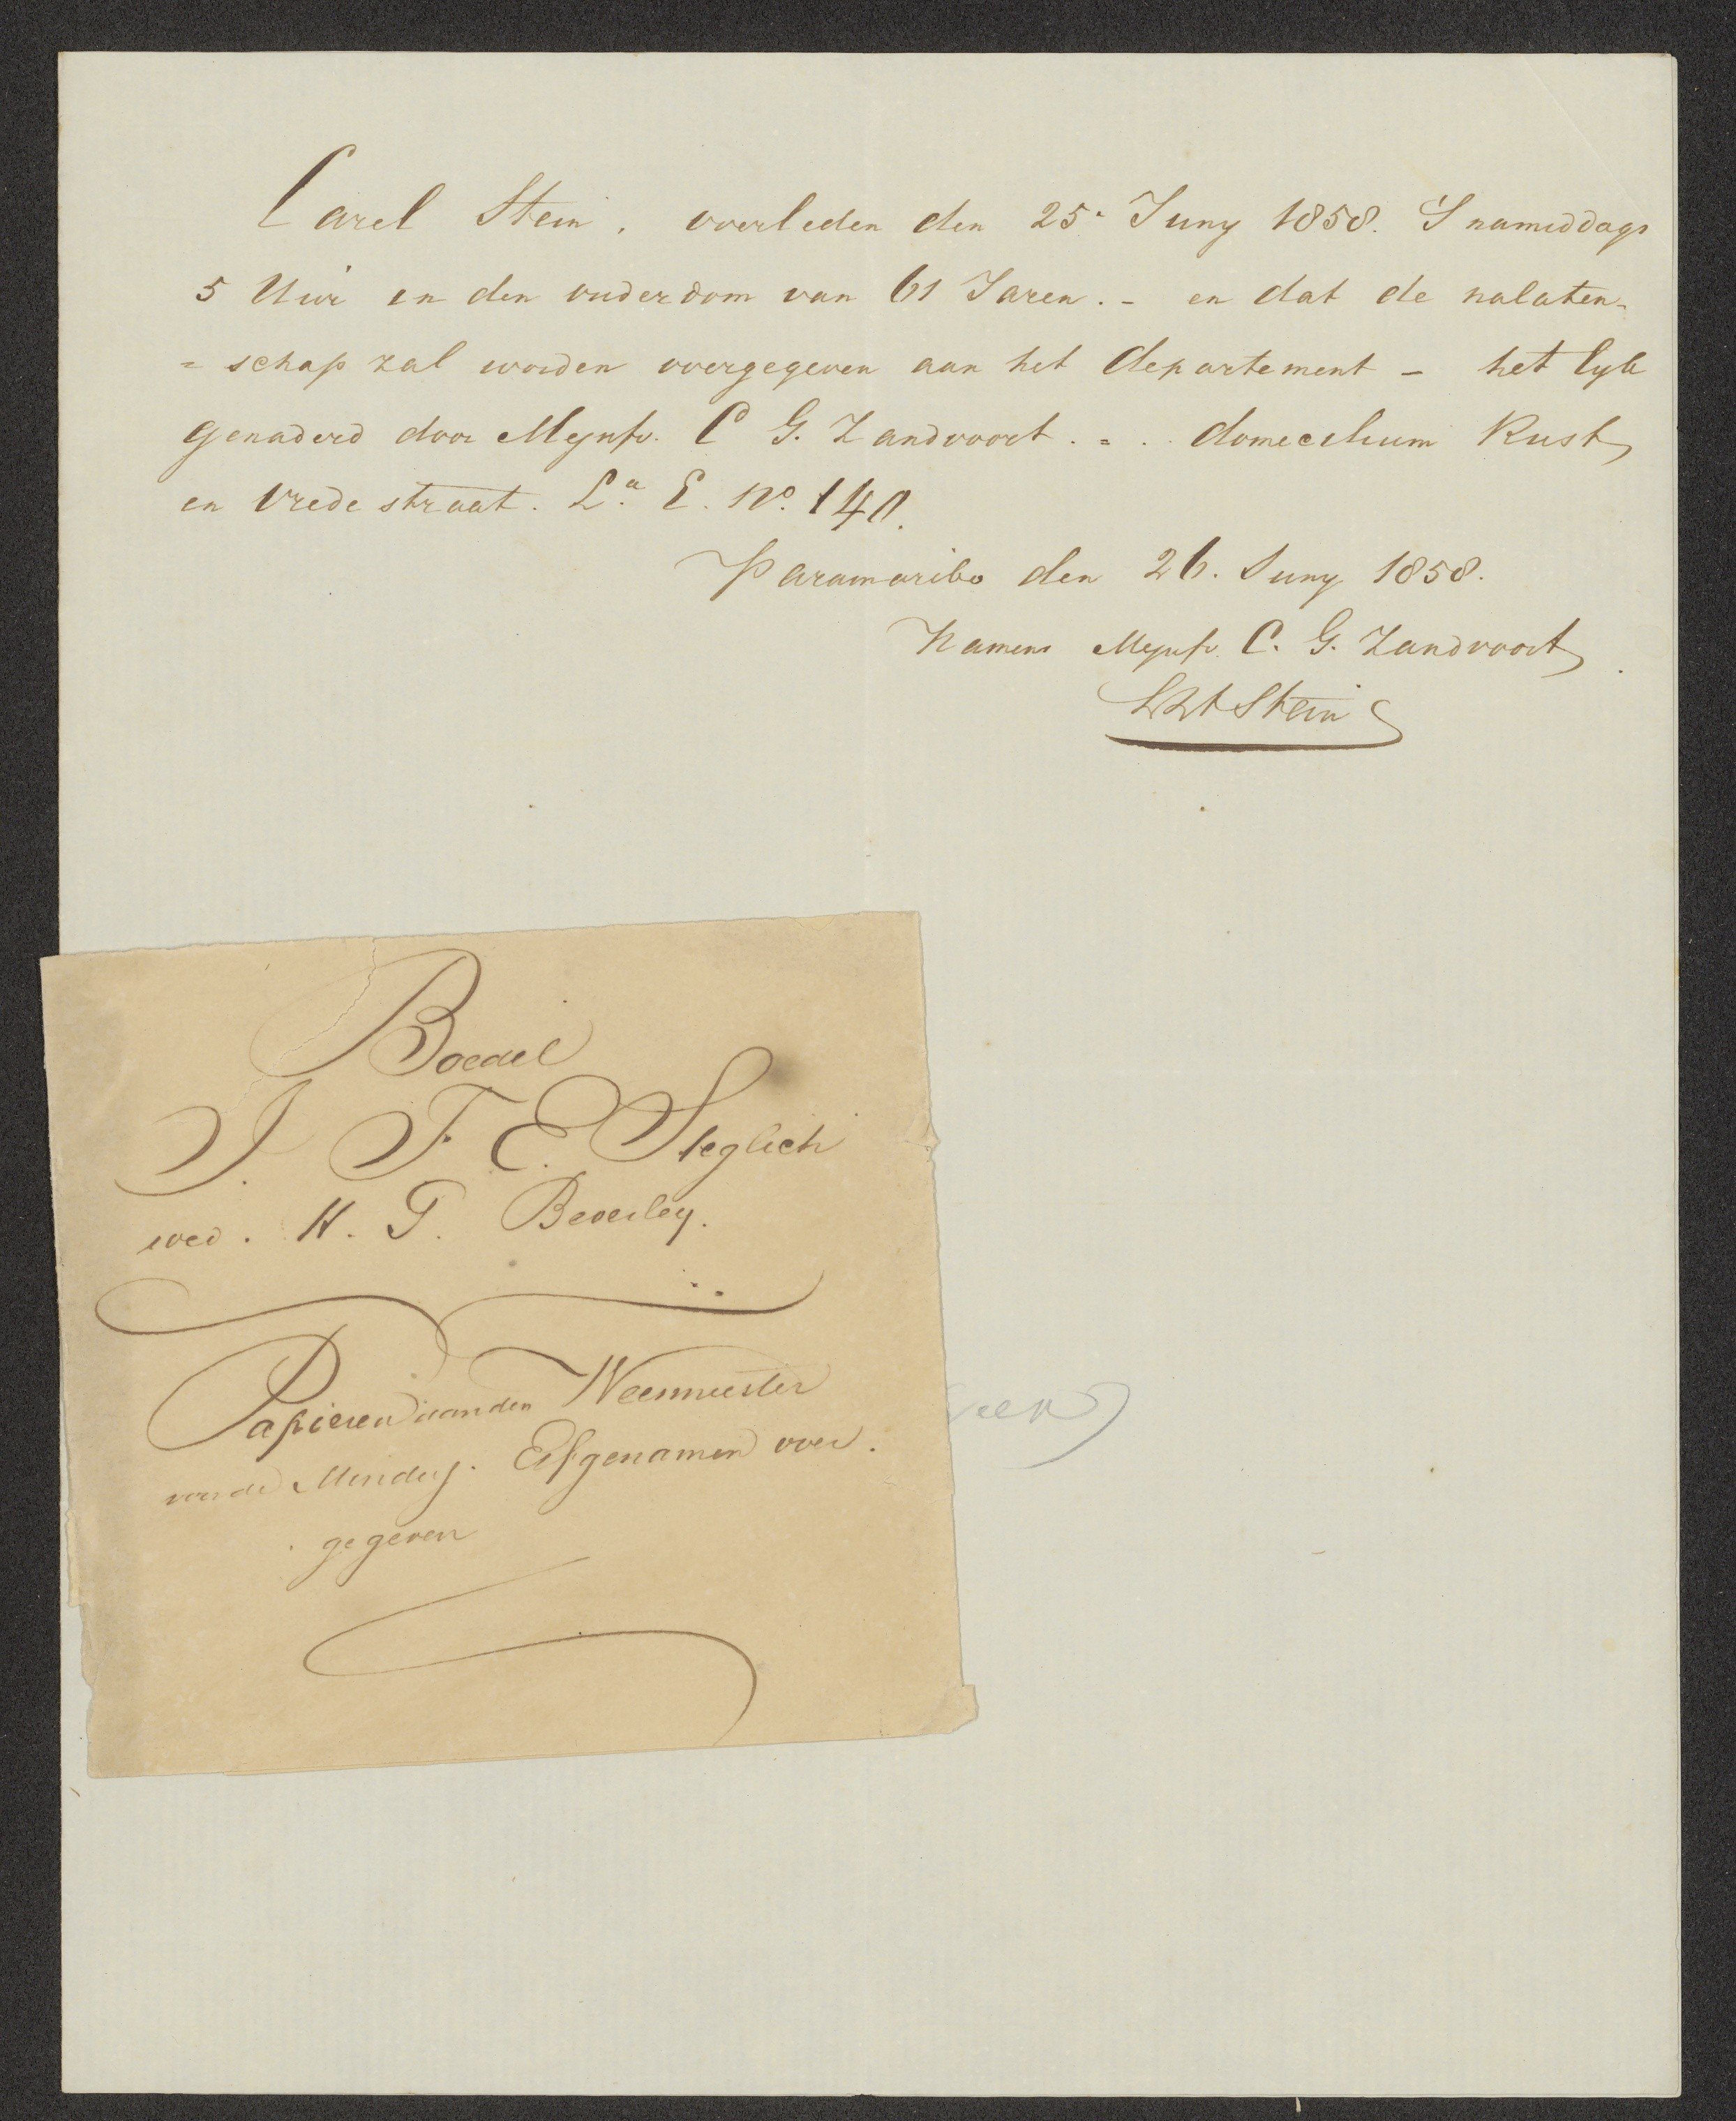 Carel Stein, overleden den 25e Juny 1858. S namiddags
5 Uur in den ouderdom van 61 Jaren. - en dat de nalaten-
= schap zal worden overgegeven aan het departement - het lyk
genaderd door Mejufv. C G. Zandvoort. = . domecilium Rust
en Vrede straat. La. E. No. 140.
Paramaribo den 26. Juny 1858.
Namens Mejufv. C. G. Zandvoort
Stein
Boedel
J. F. E. Steglich
wed. H. G. Beverley.
Papieren aan den Weesmeester
van de Minderj. Erfgenamen over.
gegeven